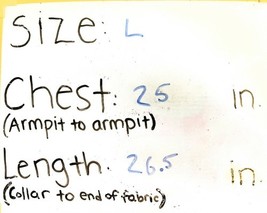 Size: L
Chest: 25 in.
(Armpit to armpit)
Length: 26.5 in.
(Collar to end of fabric)